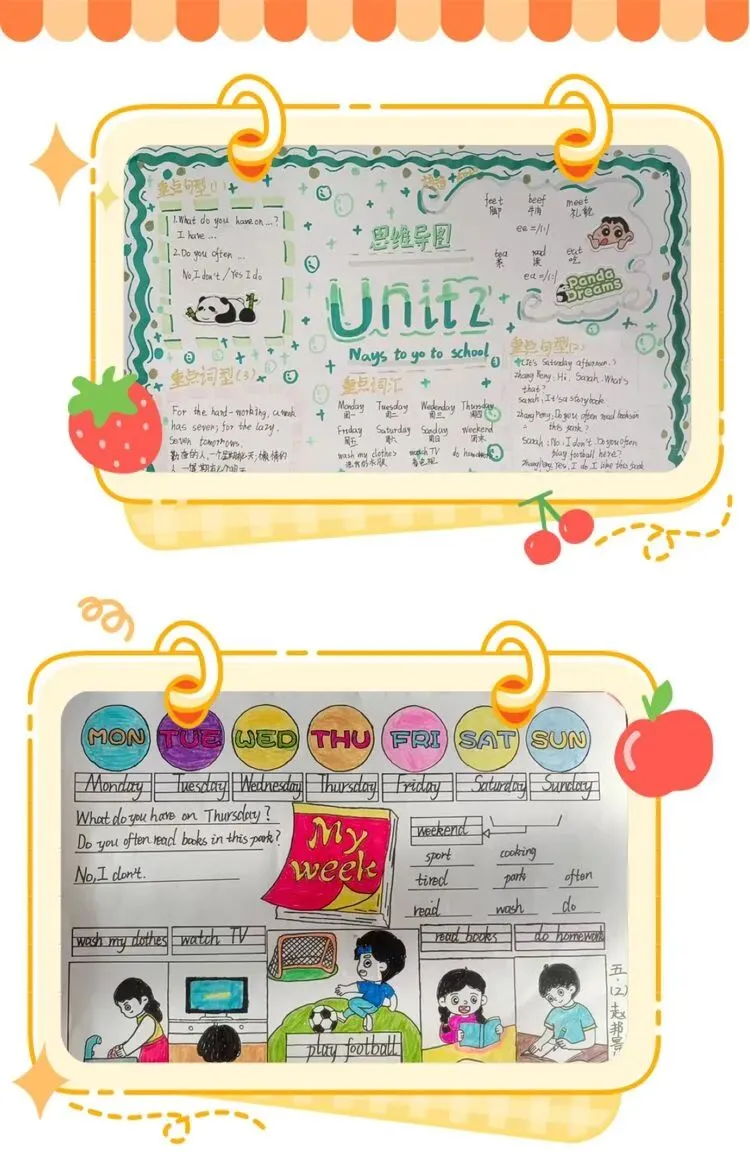 重点句型(1)
1.What do you have on ...?
I have ...
2.Do you often ...
No,I don't / Yes I do
思维导图
Unit2
Nays to yo to school
feet beef meet
脚 牛肉
ee=/i:/
tea read eat
茶 读 吃
ea=/i:/
Panda
Dreams
重点句型(2)
(It's Saturday afternoon.)
Zhang Peng: Hi, Sarah. What's
that?
Sarah: It's a storybook.
Zhang Peng: Do you often read books in
this park?
Sarah: No, I don't. Do you often
play football here?
Zhang Peng: Yes, I do. I like this park
重点词型(3)
For the hard-working, a week
has seven; for the lazy.
Seven tomorrows.
重点词汇
Monday Tuesday Wednesday Thursday
周一 周二 周三 周四
Friday Saturday Sunday Weekend
周五 周六 周日 周末
wash my clothes watch TV do homework
看电视
MON TUE WED THU FRI SAT SUN
Monday Tuesday Wednesday Thursday Friday Saturday Sunday
What do you have on Thursday?
Do you often read books in this park?
No, I don't.
My
week
weekend
sport cooking
tired park often
read wash do
wash my clothes watch TV read books do homework
play football
五.(2)赵